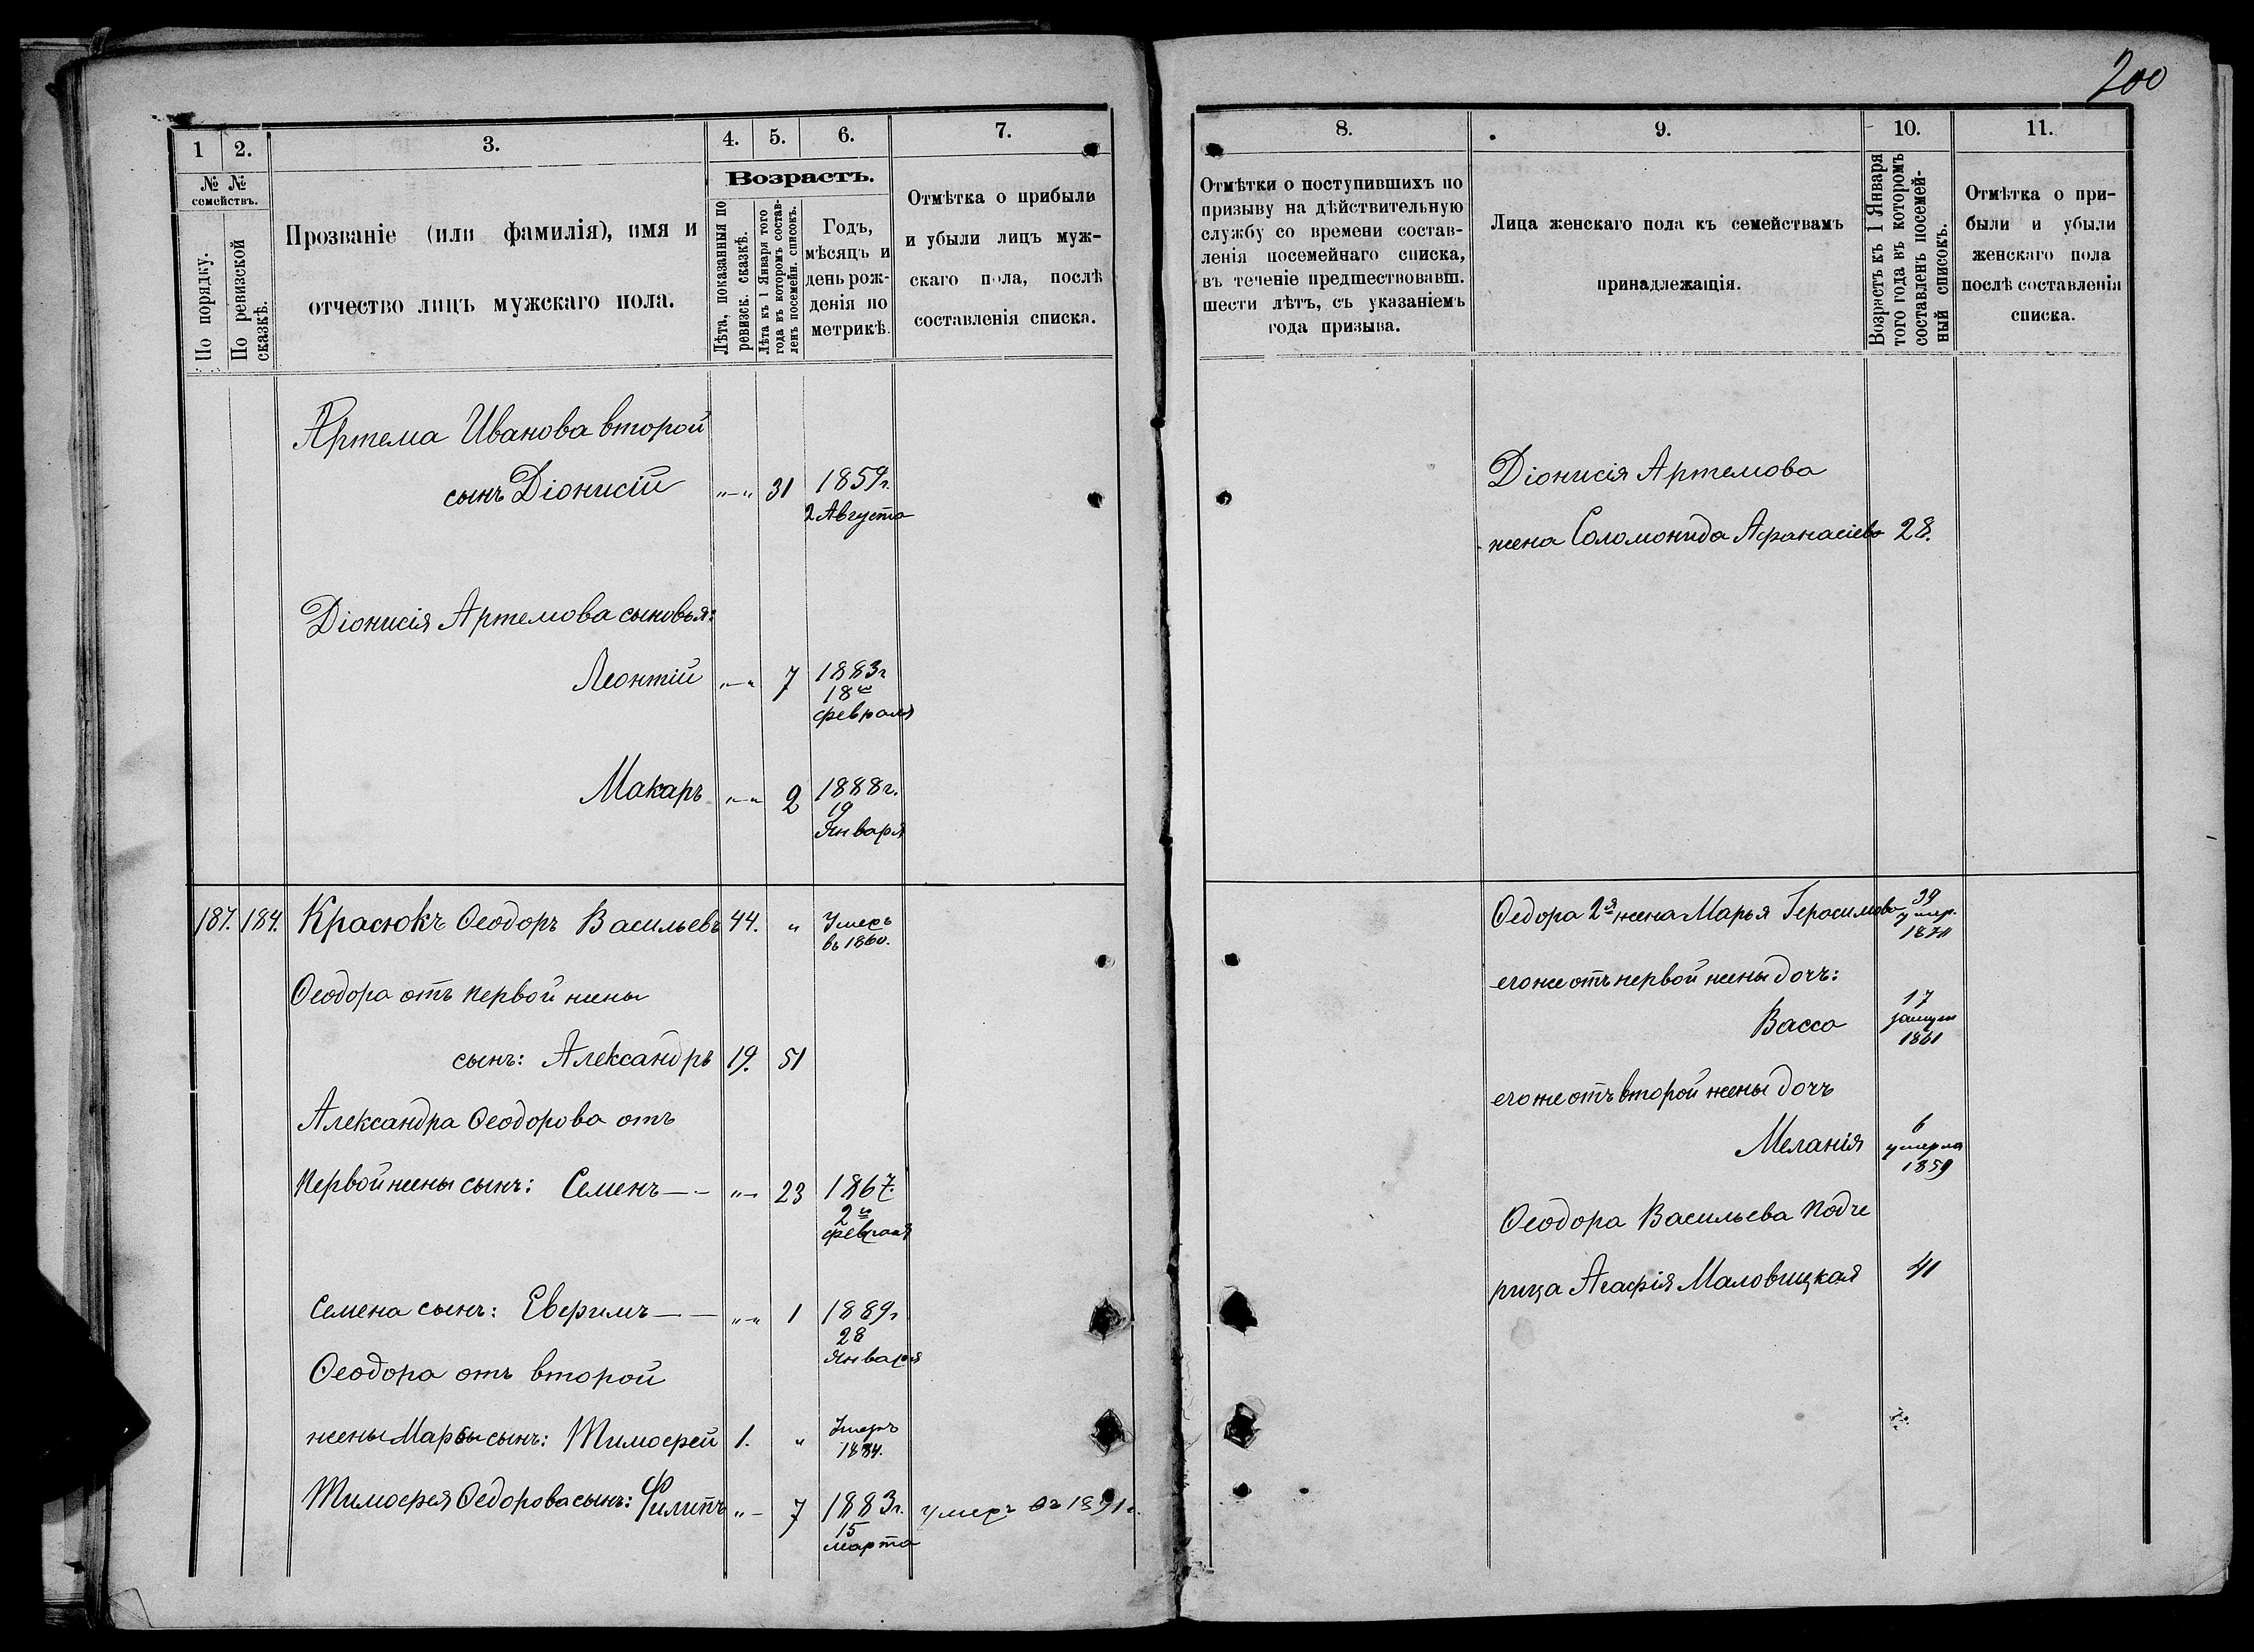 200
1
2.
3.
4.
5.
6.
7.
№ №
семействъ.
По порядку.
По ревизской
сказкѣ.
Прозваніе (или фамилія), имя и
отчество лицъ мужскаго пола.
Возрастъ.
Лѣта, показанныя по
ревизск. сказкѣ.
Лѣта къ 1 Января того
года въ которомъ состав-
ленъ посемейн. списокъ.
Годъ,
мѣсяцъ и
день рож-
денія по
метрикѣ.
Отмѣтка о прибыли
и убыли лицъ муж-
скаго пола, послѣ
составленія списка.
Артема Иванова второй
сынъ Діонисій „—„ 31 1859г.
2 Августа
Діонисія Артемова сыновья:
Леонтій „—„ 7 1883г
18го
февраля
Макаръ „—„ 2 1888г.
19
Января
187. 184. Красюкъ Ѳеодоръ Васильевъ 44. „ Умеръ
въ 1860.
Ѳеодора отъ первой жены
сынъ: Александръ 19. 51
Александра Ѳеодорова отъ
первой жены сынъ: Семенъ — - „— 23 1867.
2го
февраля
Семена сынъ: Евфимъ — — „—„ 1 1889г
28
Января
Ѳеодора отъ второй
жены Марьи сынъ: Тимофей 1. „ Умеръ
1884.
Тимофея Ѳедорова сынъ: Филипъ „— 7 1883г. умеръ въ 1891г.
15
марта
8.
9.
10.
11.
Отмѣтки о поступившихъ по
призыву на дѣйствительную
службу со времени состав-
ленія посемейнаго списка,
въ теченіе предшествовавш.
шести лѣтъ, съ указаніемъ
года призыва.
Лица женскаго пола къ семействамъ
принадлежащія.
Возрастъ къ 1 Января
того года въ которомъ
составленъ посемей-
ный списокъ.
Отмѣтка о при-
были и убыли
женскаго пола
послѣ составленія
списка.
Діонисія Артемова
жена Соломонида Афанасіева 28.
Ѳедора 2я жена Марья Герасимова 39
умер.
его же отъ первой жены дочь:
Васса 17
замуж
1861
его же отъ второй жены дочь
Меланія 6
умерла
1859
Ѳеодора Васильева подче
рица Агафія Маловицкая 41